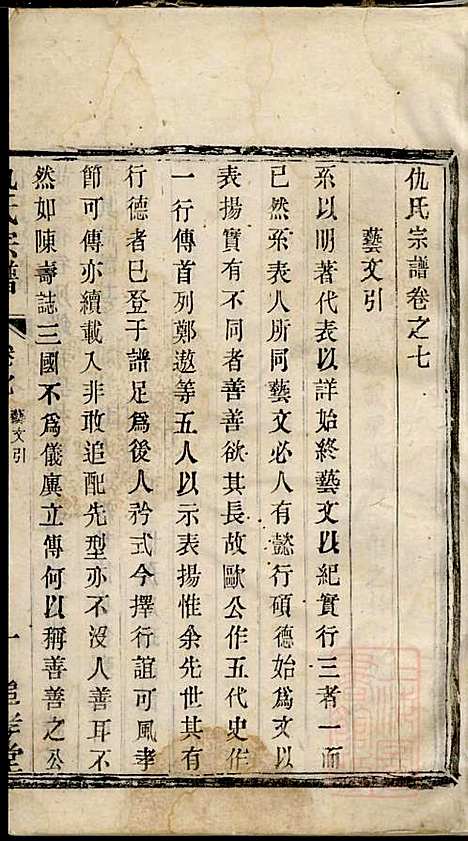 仇氏宗譜卷之七
藝文引
系以明著代表以詳始終藝文以紀實行三者一而
已然系表人所同藝文必人有懿行碩德始爲文以
表揚實有不同者善善欲其長故歐公作五代史作
一行傳首列鄭遨等五人以示表揚惟余先世其有
行德者已登于譜足爲後人矜式今擇行誼可風孝
節可傳亦續載入非敢追配先型亦不沒人善耳不
然如陳壽誌三國不爲儀廙立傳何以稱善善之公
氏宗譜
藝文引
一
堂